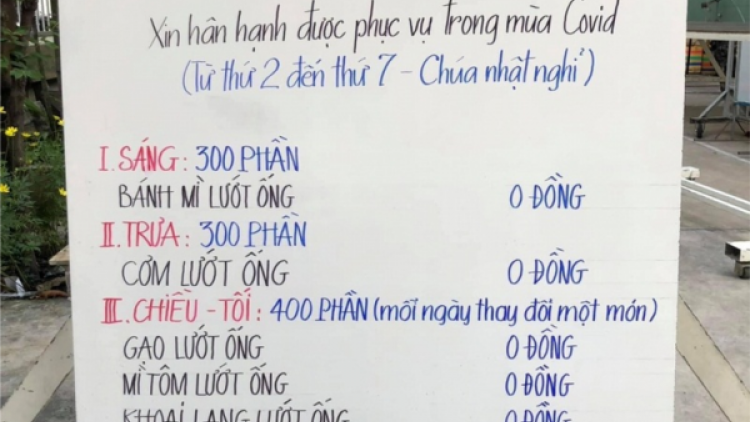 Xin hân hạnh được phục vụ trong mùa Covid
(Từ thứ 2 đến thứ 7 - Chúa nhật nghỉ)
I. SÁNG: 300 PHẦN
BÁNH MÌ LƯỚT ỐNG 0 ĐỒNG
II. TRƯA: 300 PHẦN
CƠM LƯỚT ỐNG 0 ĐỒNG
III. CHIỀU - TỐI: 400 PHẦN (mỗi ngày thay đổi một món)
GẠO LƯỚT ỐNG 0 ĐỒNG
MÌ TÔM LƯỚT ỐNG 0 ĐỒNG
KHOAI LANG LƯỚT ỐNG 0 ĐỒNG